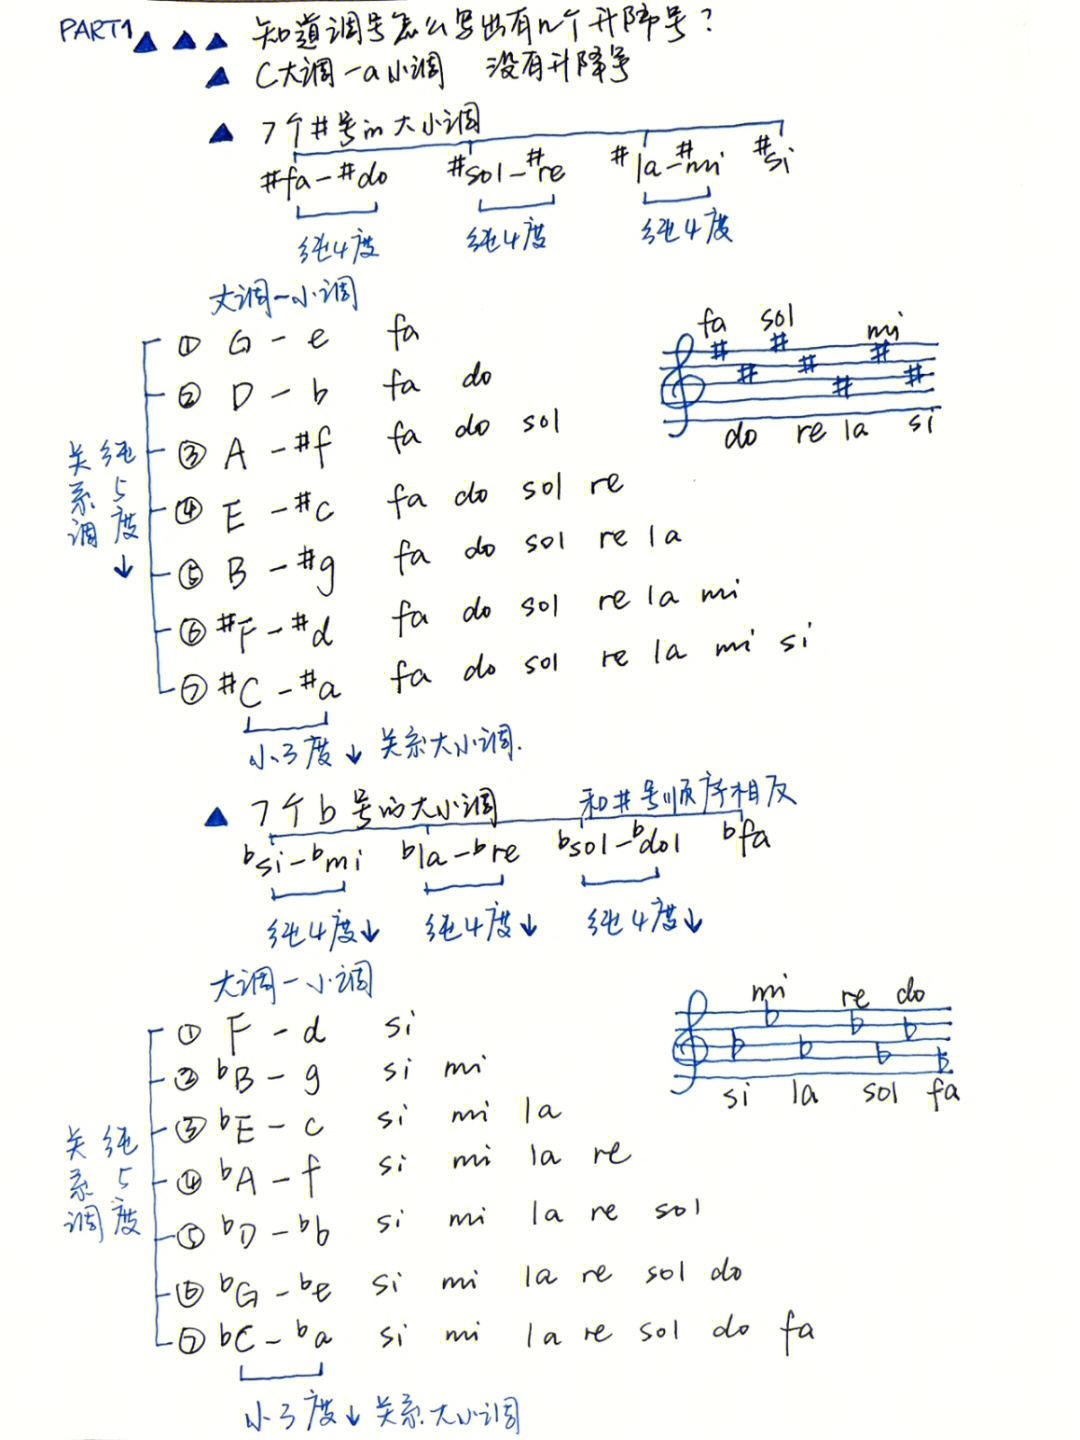 PART1▲▲▲ 知道调号怎么写出有几个升降号?
▲ C大调-a小调 没有升降号
▲ 7个#号in大小调
#fa-#do #sol-#re #la-#mi #si
纯4度 纯4度 纯4度
大调-小调
① G - e fa
② D - b fa do
③ A - #f fa do sol
④ E - #c fa do sol re
⑤ B - #g fa do sol re la
⑥ #F - #d fa do sol re la mi
⑦ #C - #a fa do sol re la mi si
纯5度↓
关系调
fa sol mi
do re la si
小3度↓关系大小调.
▲ 7个b号的大小调 和#号顺序相反
bsi-bmi bla-bre bsol-bdol bfa
纯4度↓ 纯4度↓ 纯4度↓
大调-小调
① F - d si
② bB - g si mi
③ bE - c si mi la
④ bA - f si mi la re
⑤ bD - bb si mi la re sol
⑥ bG - be si mi la re sol do
⑦ bC - ba si mi la re sol do fa
纯5度
关系调
mi re do
si la sol fa
小3度↓关系大小调